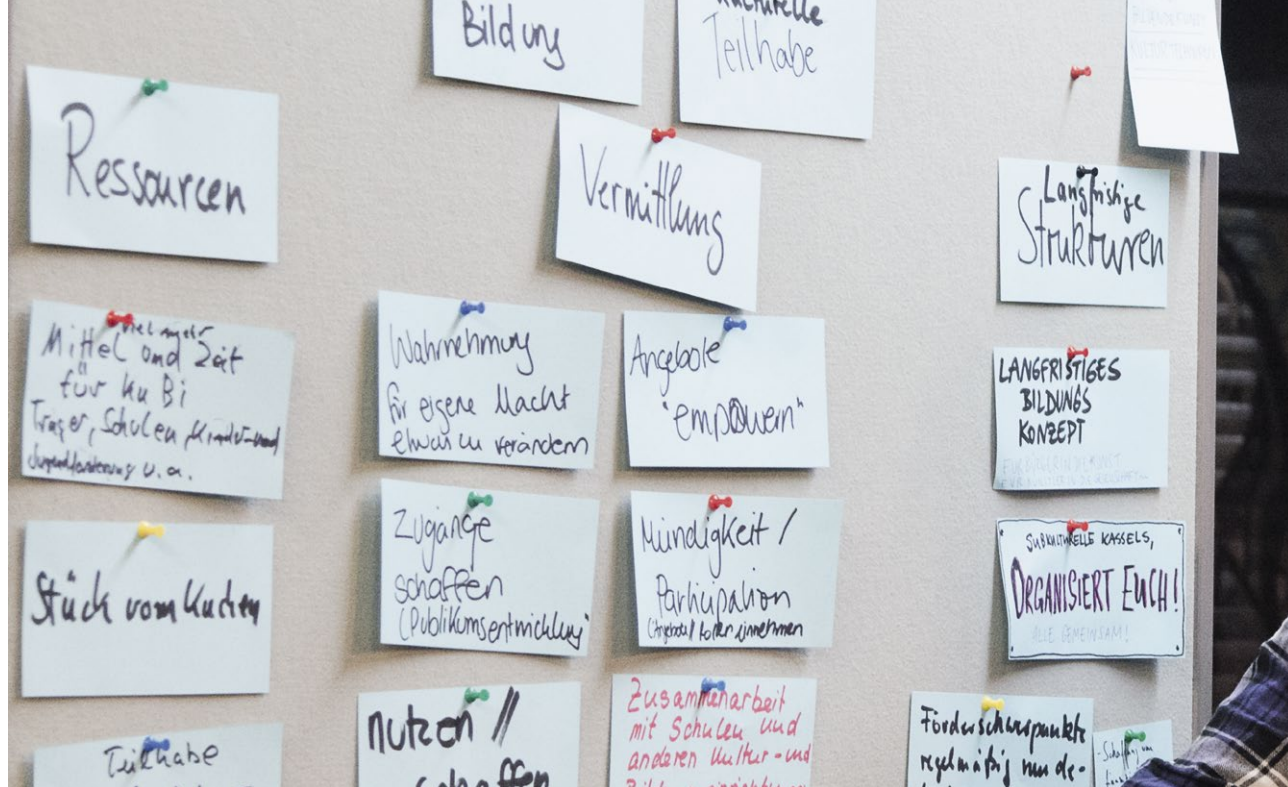 Bildung
kulturelle
Teilhabe
Ressourcen
Vermittlung
Langfristige
Strukturen
viel mehr
Mittel und Zeit
für KuBi
Träger, Schulen, Kinder- und
Jugendförderung u. a.
Wahrnehmung
für eigene Macht
etwas zu verändern
Angebote
"empowern"
LANGFRISTIGES
BILDUNGS
KONZEPT
Stück vom Kuchen
Zugänge
schaffen
(Publikumsentwicklung)
Mündigkeit /
Partizipation
SUBKULTURELLE KASSELS,
ORGANISIERT EUCH!
ALLE GEMEINSAM!
Teilhabe
nutzen //
schaffen
Zusammenarbeit
mit Schulen und
anderen Kultur- und
Förderschwerpunkte
regelmäßig neu de-